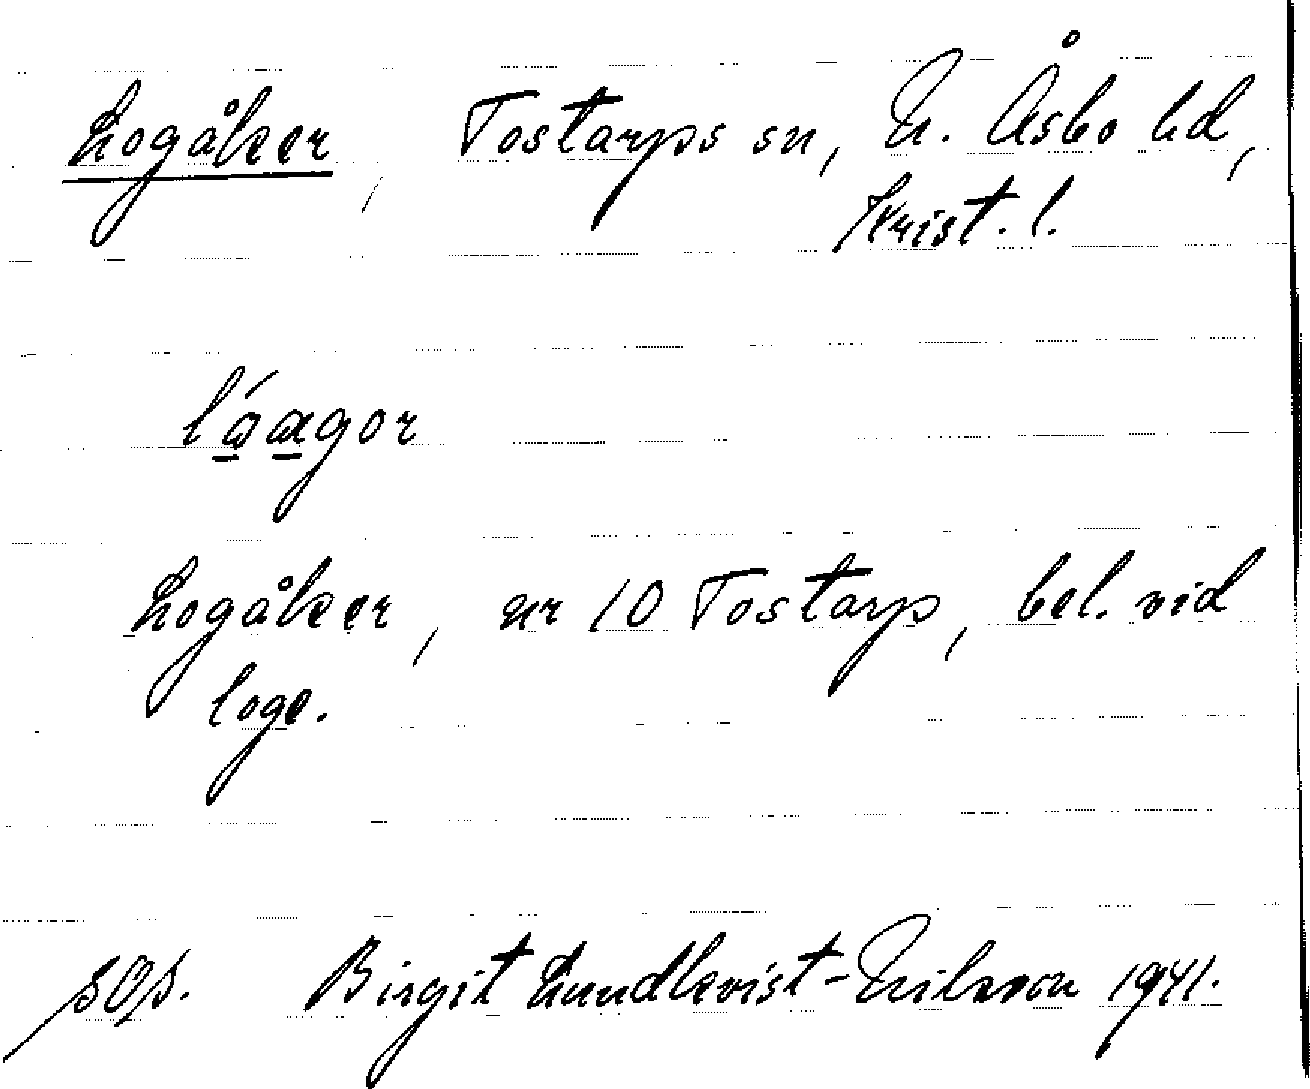 Logåker, Tostarps sn, N. Åsbo hd,
Krist. l.
lágor
Logåker, nr 10 Tostarp, bel. vid
loge.
Birgit Lundkvist-Nilsson 1941.